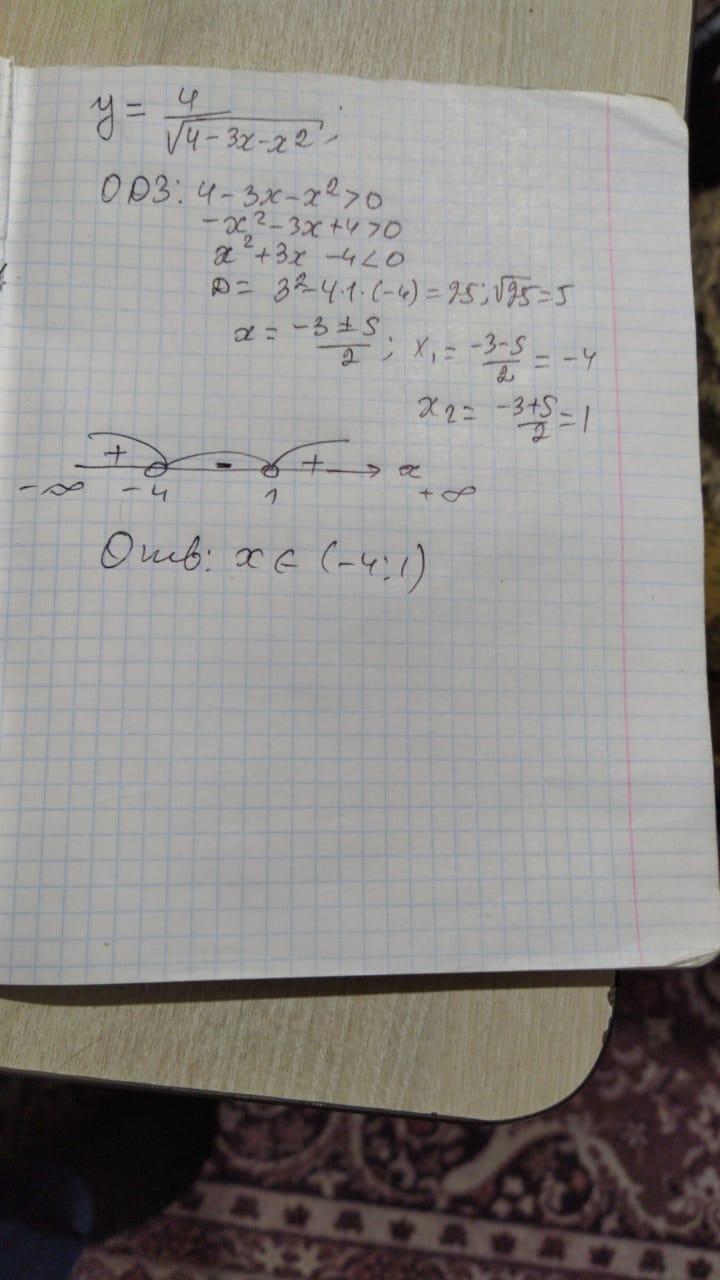 y = 4/√(4-3x-x2);
ОДЗ: 4-3x-x²>0
-x²-3x+4>0
x²+3x-4<0
D = 3²-4·1·(-4)=25; √25=5
x = (-3±5)/2; x₁ = (-3-5)/2 = -4
x₂ = (-3+5)/2 = 1
+ - + x
-∞ -4 1 +∞
Отв: x ∈ (-4;1)